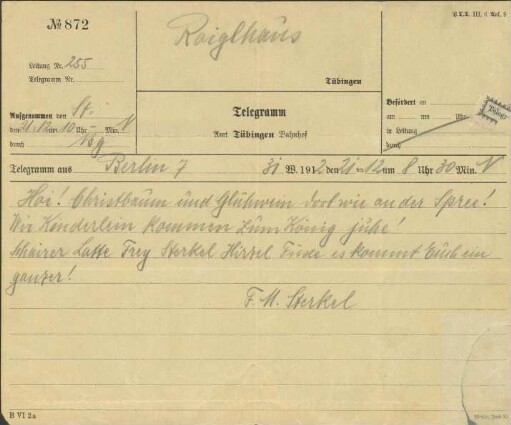 № 872
Roiglhaus
B.T.A. III, 6 Anl. 8
Leitung Nr. 255
Telegramm Nr.
Tübingen
Aufgenommen von St.
den 21/12 10 Uhr – Min. N
durch
Telegramm
Amt Tübingen Bahnhof
Befördert an
am um Uhr
in Leitung
durch
Telegramm aus Berlin 7 31 W. 1912 den 21/12 um 8 Uhr 30 Min. N
Hoi! Christbaum und Glühwein dort wie an der Spree!
Wir Kinderlein kommen zum König juhe!
Schairer Latte Frey Sterkel Hirzel Finde es kommt Euch ein
ganzer!
F. M. Sterkel
B VI 2a